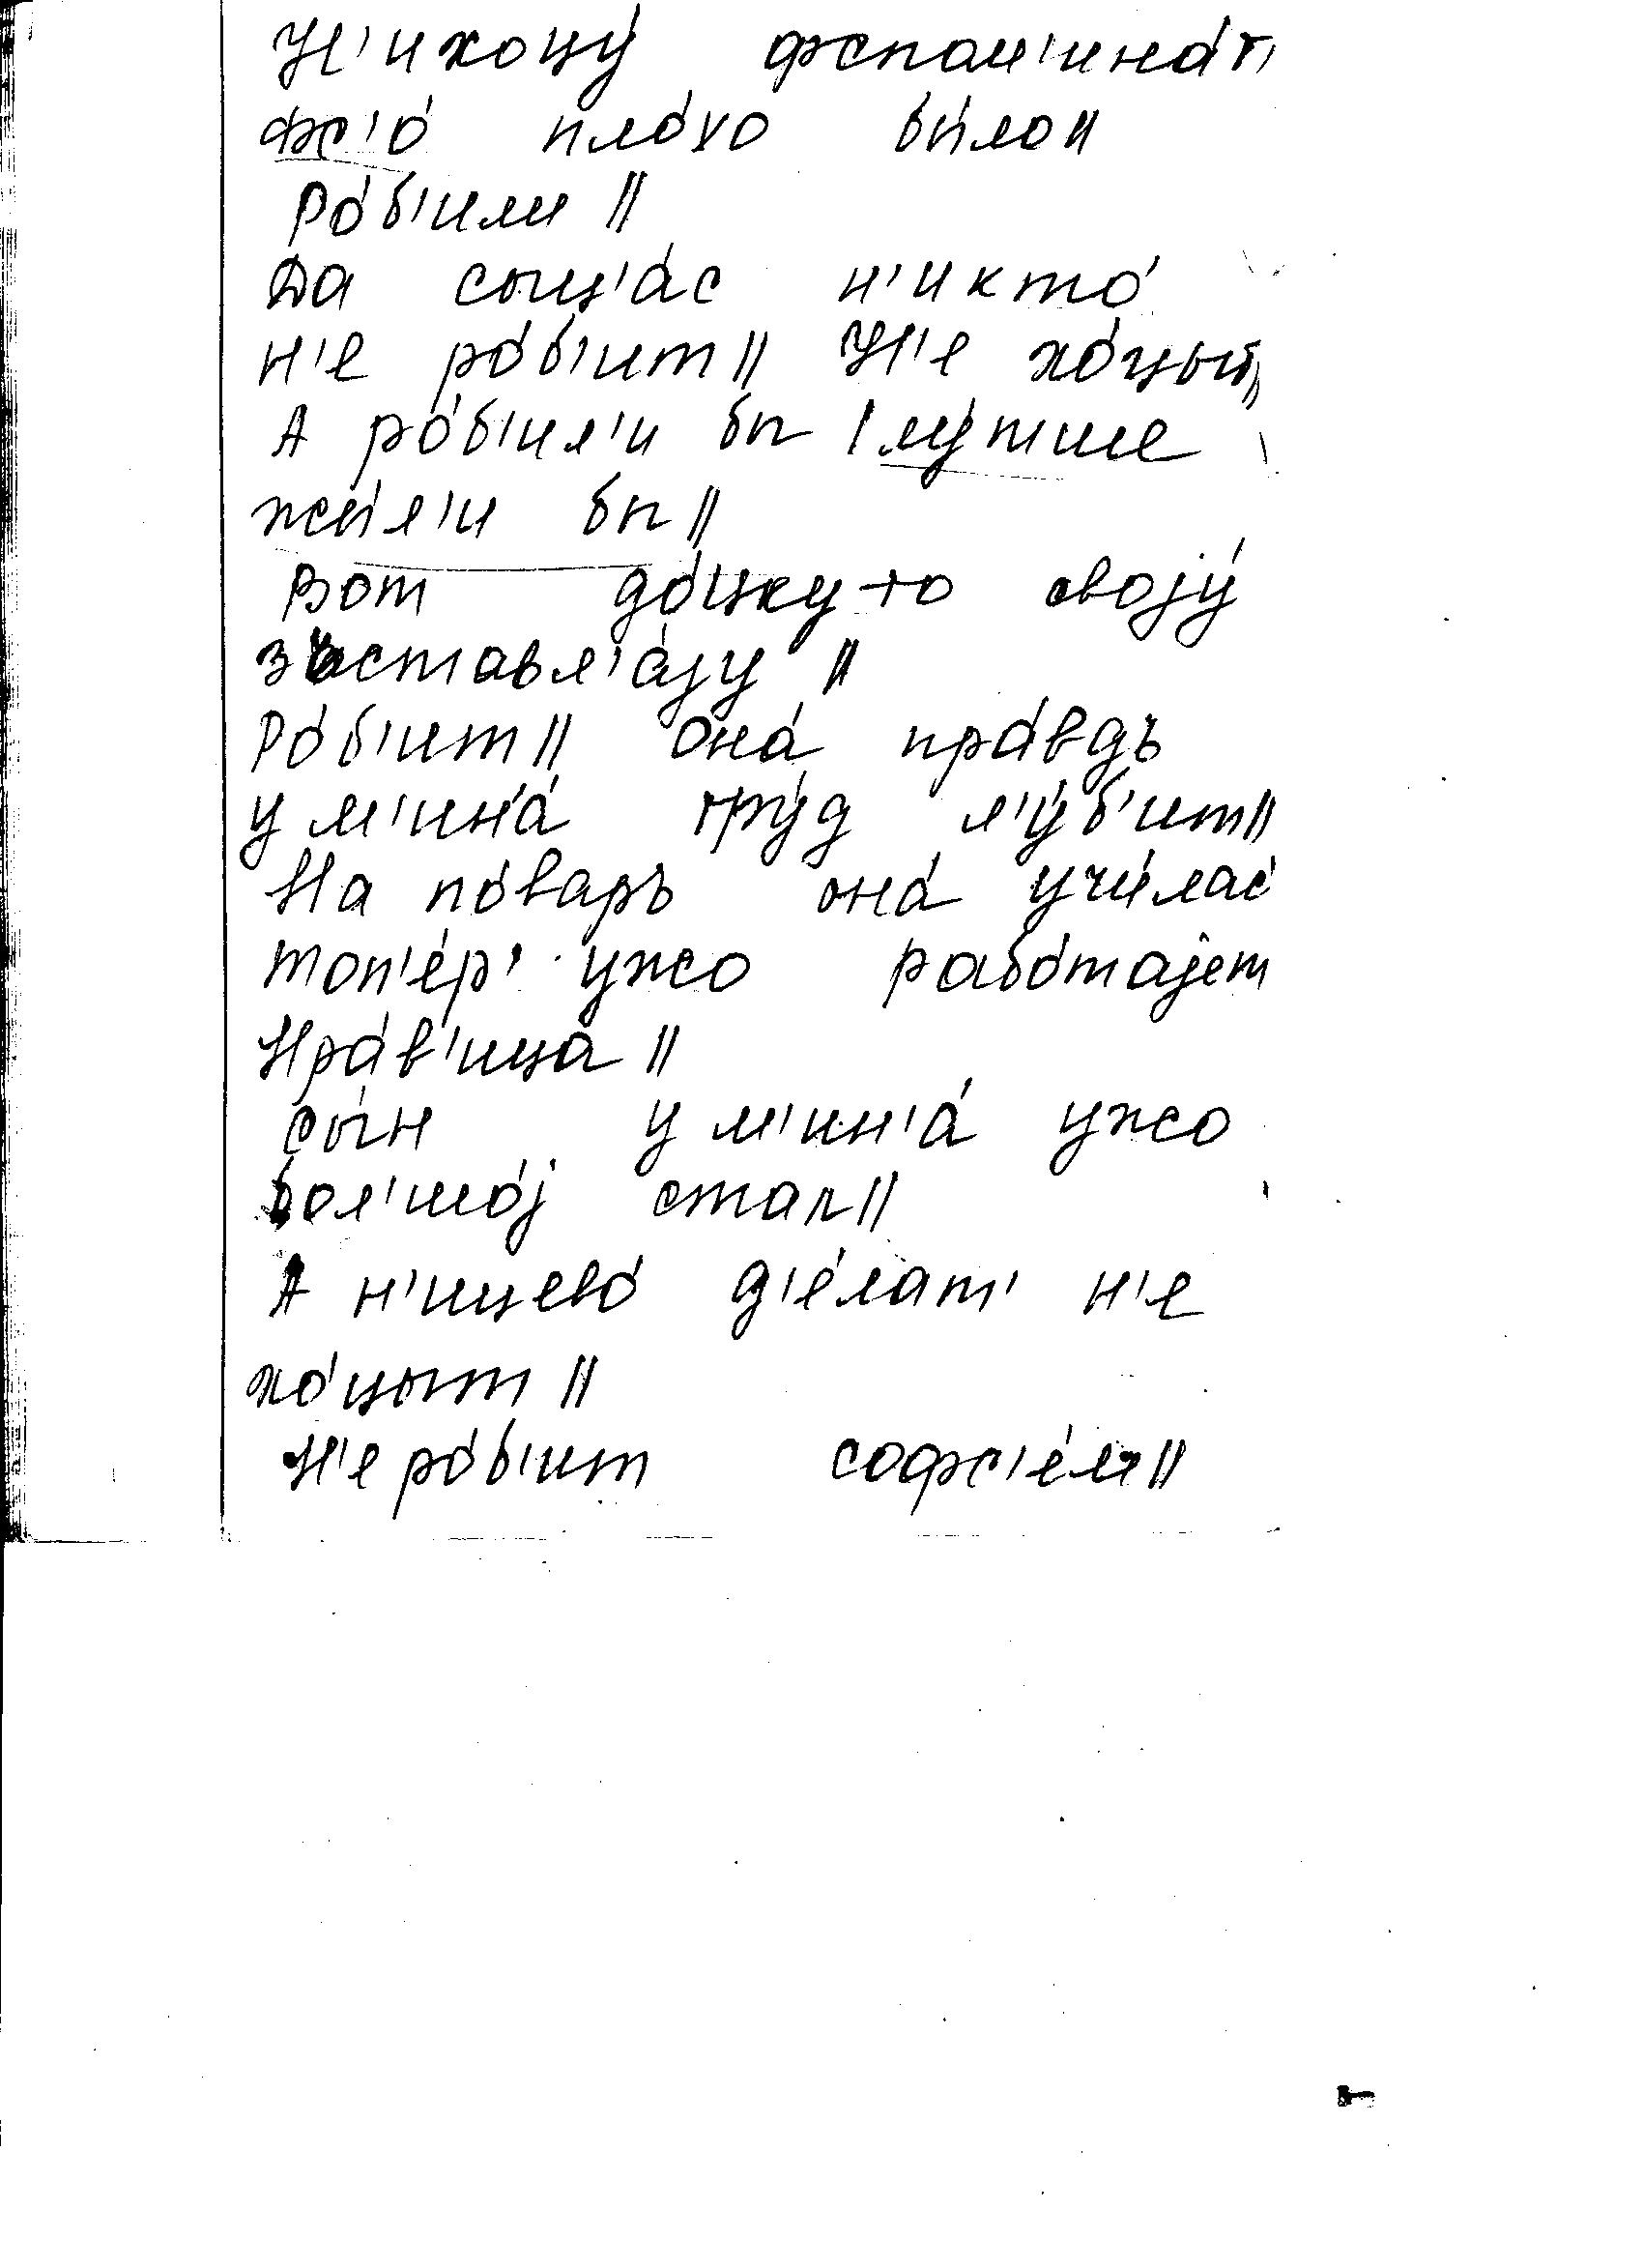 Н'ихоцу́ фспом'ина́т'
фс'о́ пло́хо бы́ло ||
Ро́б'или ||
Да сыц'а́с н'икто́
н'е ро́б'ит || Н'е хо́цыт ||
А ро́б'ил'и бы | лу́тше
жы́л'и бы ||
Вот до́цку-то својý
зъставл'а́ју ||
Ро́б'ит || Она́ пра́вдъ
у м'ин'а́ тру́д л'у́б'ит ||
На по́варъ она́ учи́лас'
топ'е́р' ужо рабо́тајет
Нра́в'ица ||
Сы́н у м'ин'а́ ужо
бол'шо́ј стал ||
А н'ицево́ д'е́лат' н'е
хо́цыт ||
Н'е ро́б'ит софс'е́м ||